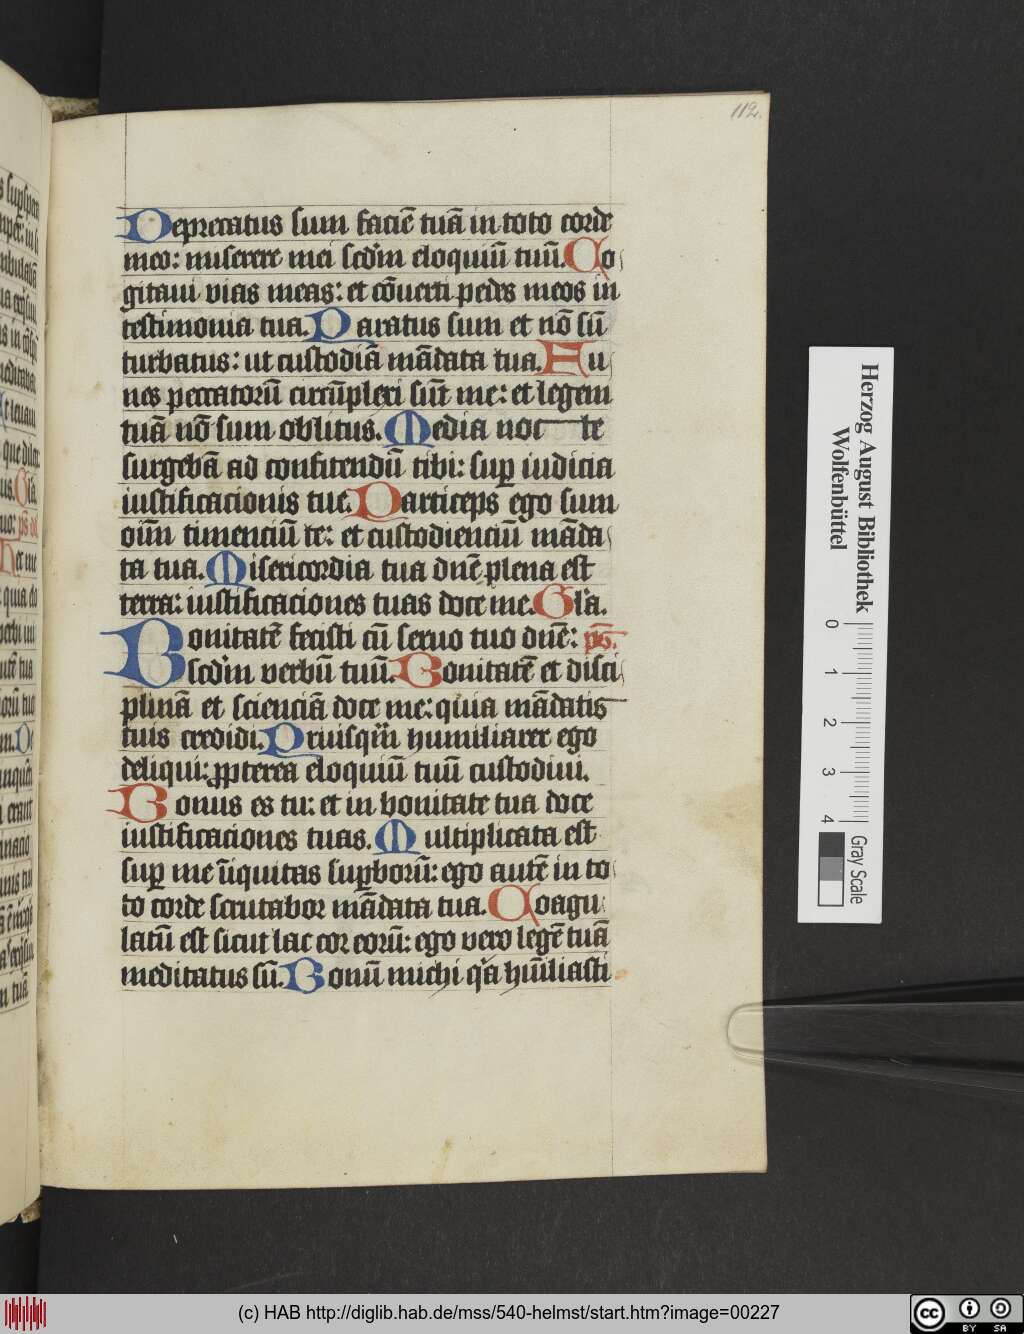 112.
Deprecatus sum faciē tuā in toto corde
meo: miserere mei scd'm eloquiū tuū. Co
gitaui vias meas: et cōuerti pedes meos in
testimonia tua. Paratus sum et nō sū
turbatus: ut custodiā mādata tua. Fu
nes peccatorū circūplexi sūt me: et legem
tuā nō sum oblitus. Media noc te
surgebā ad confitendū tibi: suꝑ iudicia
iustificacionis tue. Particeps ego sum
oīm timenciū te: et custodienciū māda
ta tua. Misericordia tua dn̄e plena est
terra: iustificaciones tuas doce me. Gl'a.
Bonitatē fecisti cū seruo tuo dn̄e: p̄s.
scd'm verbū tuū. Bonitatē et disci
plinā et scienciā doce me: quia mādatis
tuis credidi. Priusq̄m humiliarer ego
deliqui: ꝓpterea eloquiū tuū custodiui.
Bonus es tu: et in bonitate tua doce
iustificaciones tuas. Multiplicata est
suꝑ me īiquitas suꝑborū: ego autē in to
to corde scrutabor mādata tua. Coagu
latū est sicut lac cor eorū: ego vero legē tuā
meditatus sū. Bonū michi q'a hūiliasti
Herzog August Bibliothek
Wolfenbüttel
0 1 2 3 4
Gray Scale
(c) HAB http://diglib.hab.de/mss/540-helmst/start.htm?image=00227
cc BY SA